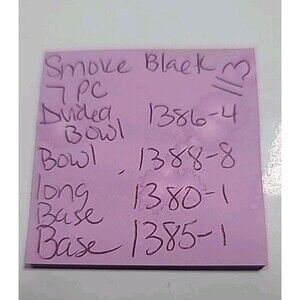 Smoke Black
7 PC
Divided 1386-4
Bowl
Bowl 1388-8
long 1380-1
Base
Base 1385-1